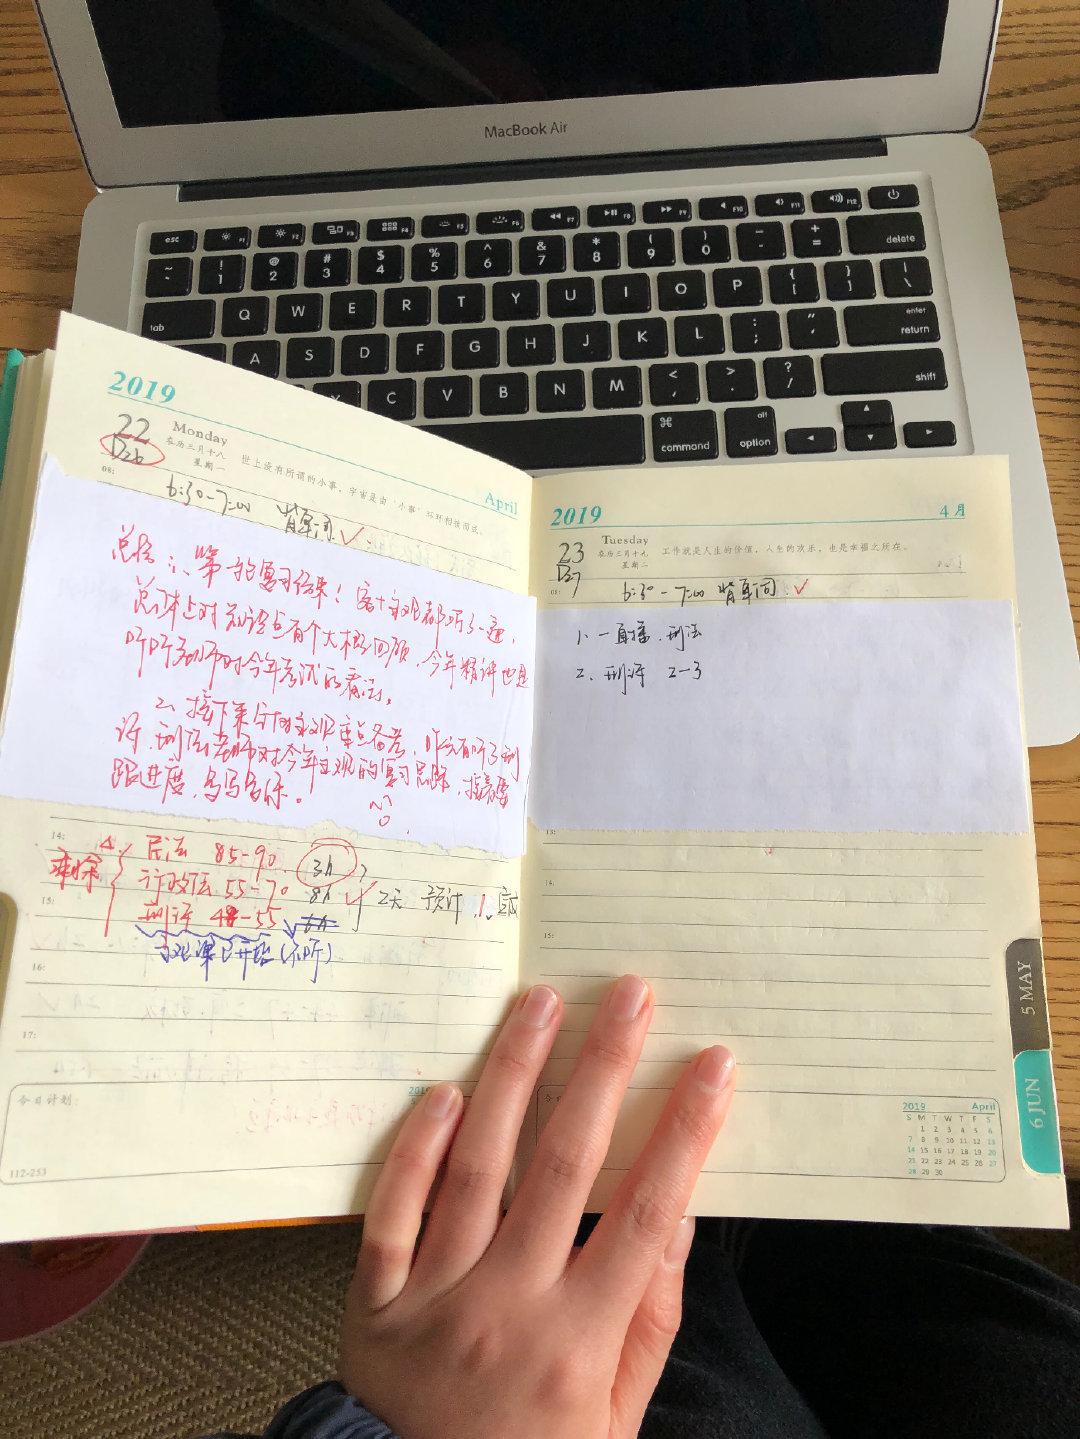 MacBook Air
esc F1 F2 F3 F4 F5 F6 F7 F8 F9 F10 F11 F12
~ ` ! 1 @ 2 # 3 $ 4 % 5 ^ 6 & 7 * 8 ( 9 ) 0 _ - + = delete
tab Q W E R T Y U I O P { [ } ] | \
A S D F G H J K L : ; " ' enter return
C V B N M < , > . ? / shift
⌘ command alt option
2019
22 Monday
农历三月十八
星期一
世上没有所谓的小事,宇宙是由“小事”环环相接而成。
April
D26
08:
6:30-7:00 背单词 ✓
总结:1、第一轮复习结束!客+主观都听了一遍,
总体上对知识点有个大概回顾,今年精讲也是
听听老师对今年考试的看法。
2、接下来分的主观重点备考,昨天有听了刑
诉、刑法老师对今年主观的复习思路,接着要
跟进度,多写多练。
14:
剩余
民法 85-90 3h
行政法 55-70 8h
刑诉 48-55
2天 预计 1、
15:
主观课已开始(不听)
16:
17:
今日计划:
112-253
2019
2019
4月
23 Tuesday
农历三月十九
星期二
工作就是人生的价值,人生的欢乐,也是幸福之所在。
D27
08:
6:30-7:00 背单词 ✓
1、一直播、刑法
2、刑诉 2-3
13:
14:
15:
5 MAY
6 JUN
2019 April
S M T W T F S
1 2 3 4 5 6
7 8 9 10 11 12 13
14 15 16 17 18 19 20
21 22 23 24 25 26 27
28 29 30